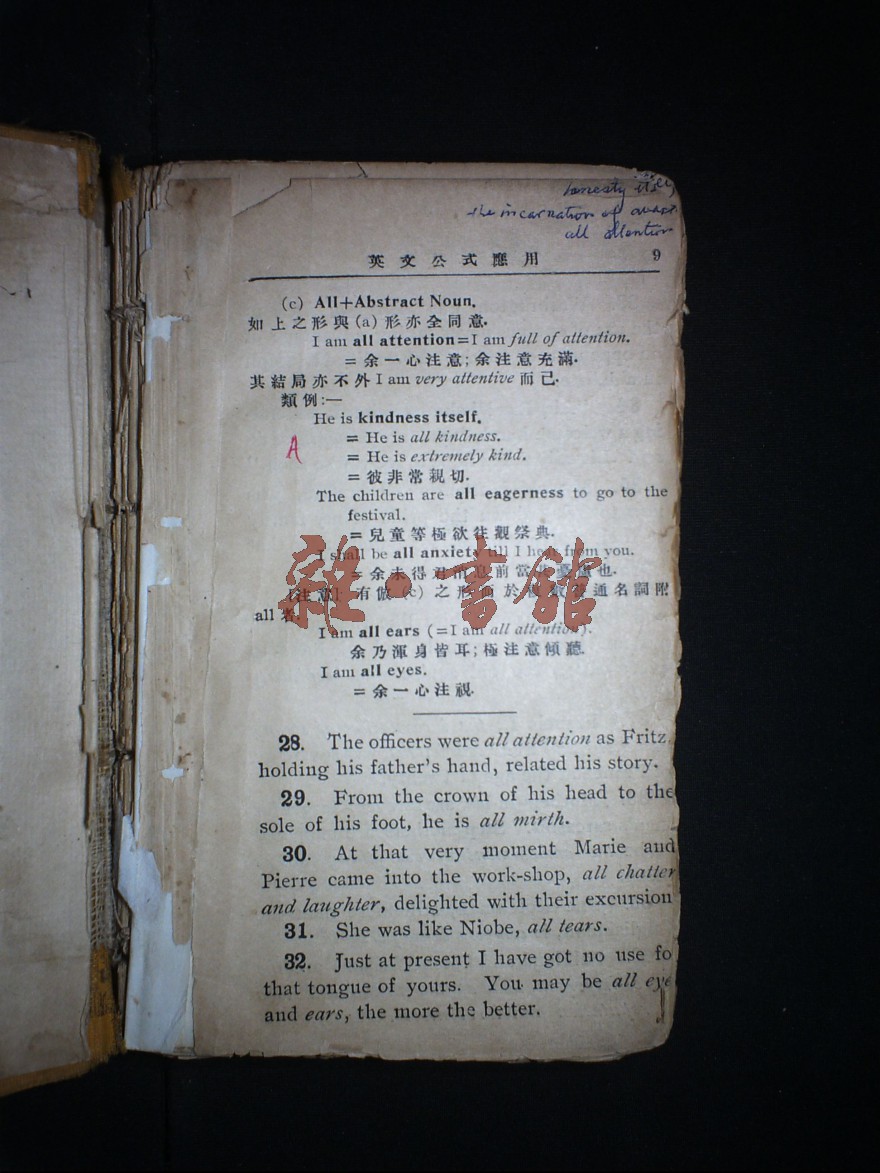 honesty itself
the incarnation of
all attention
英文公式應用 9
(c) All+Abstract Noun.
如上之形與(a)形亦全同意.
I am all attention=I am full of attention.
=余一心注意;余注意充滿.
其結局亦不外 I am very attentive 而已.
類例:—
He is kindness itself.
A
= He is all kindness.
= He is extremely kind.
=彼非常親切.
The children are all eagerness to go to the
festival.
=兒童等極欲往觀祭典.
I shall be all anxiety till I hear from you.
=余未得君消息前當也.
[注意] 有倣(c)之形而於通名詞附
all 者.
I am all ears (=I am all attention).
余乃渾身皆耳;極注意傾聽.
I am all eyes.
=余一心注視.
雜·書館
28. The officers were all attention as Fritz,
holding his father's hand, related his story.
29. From the crown of his head to the
sole of his foot, he is all mirth.
30. At that very moment Marie and
Pierre came into the work-shop, all chatter
and laughter, delighted with their excursion
31. She was like Niobe, all tears.
32. Just at present I have got no use fo
that tongue of yours. You may be all eye
and ears, the more the better.